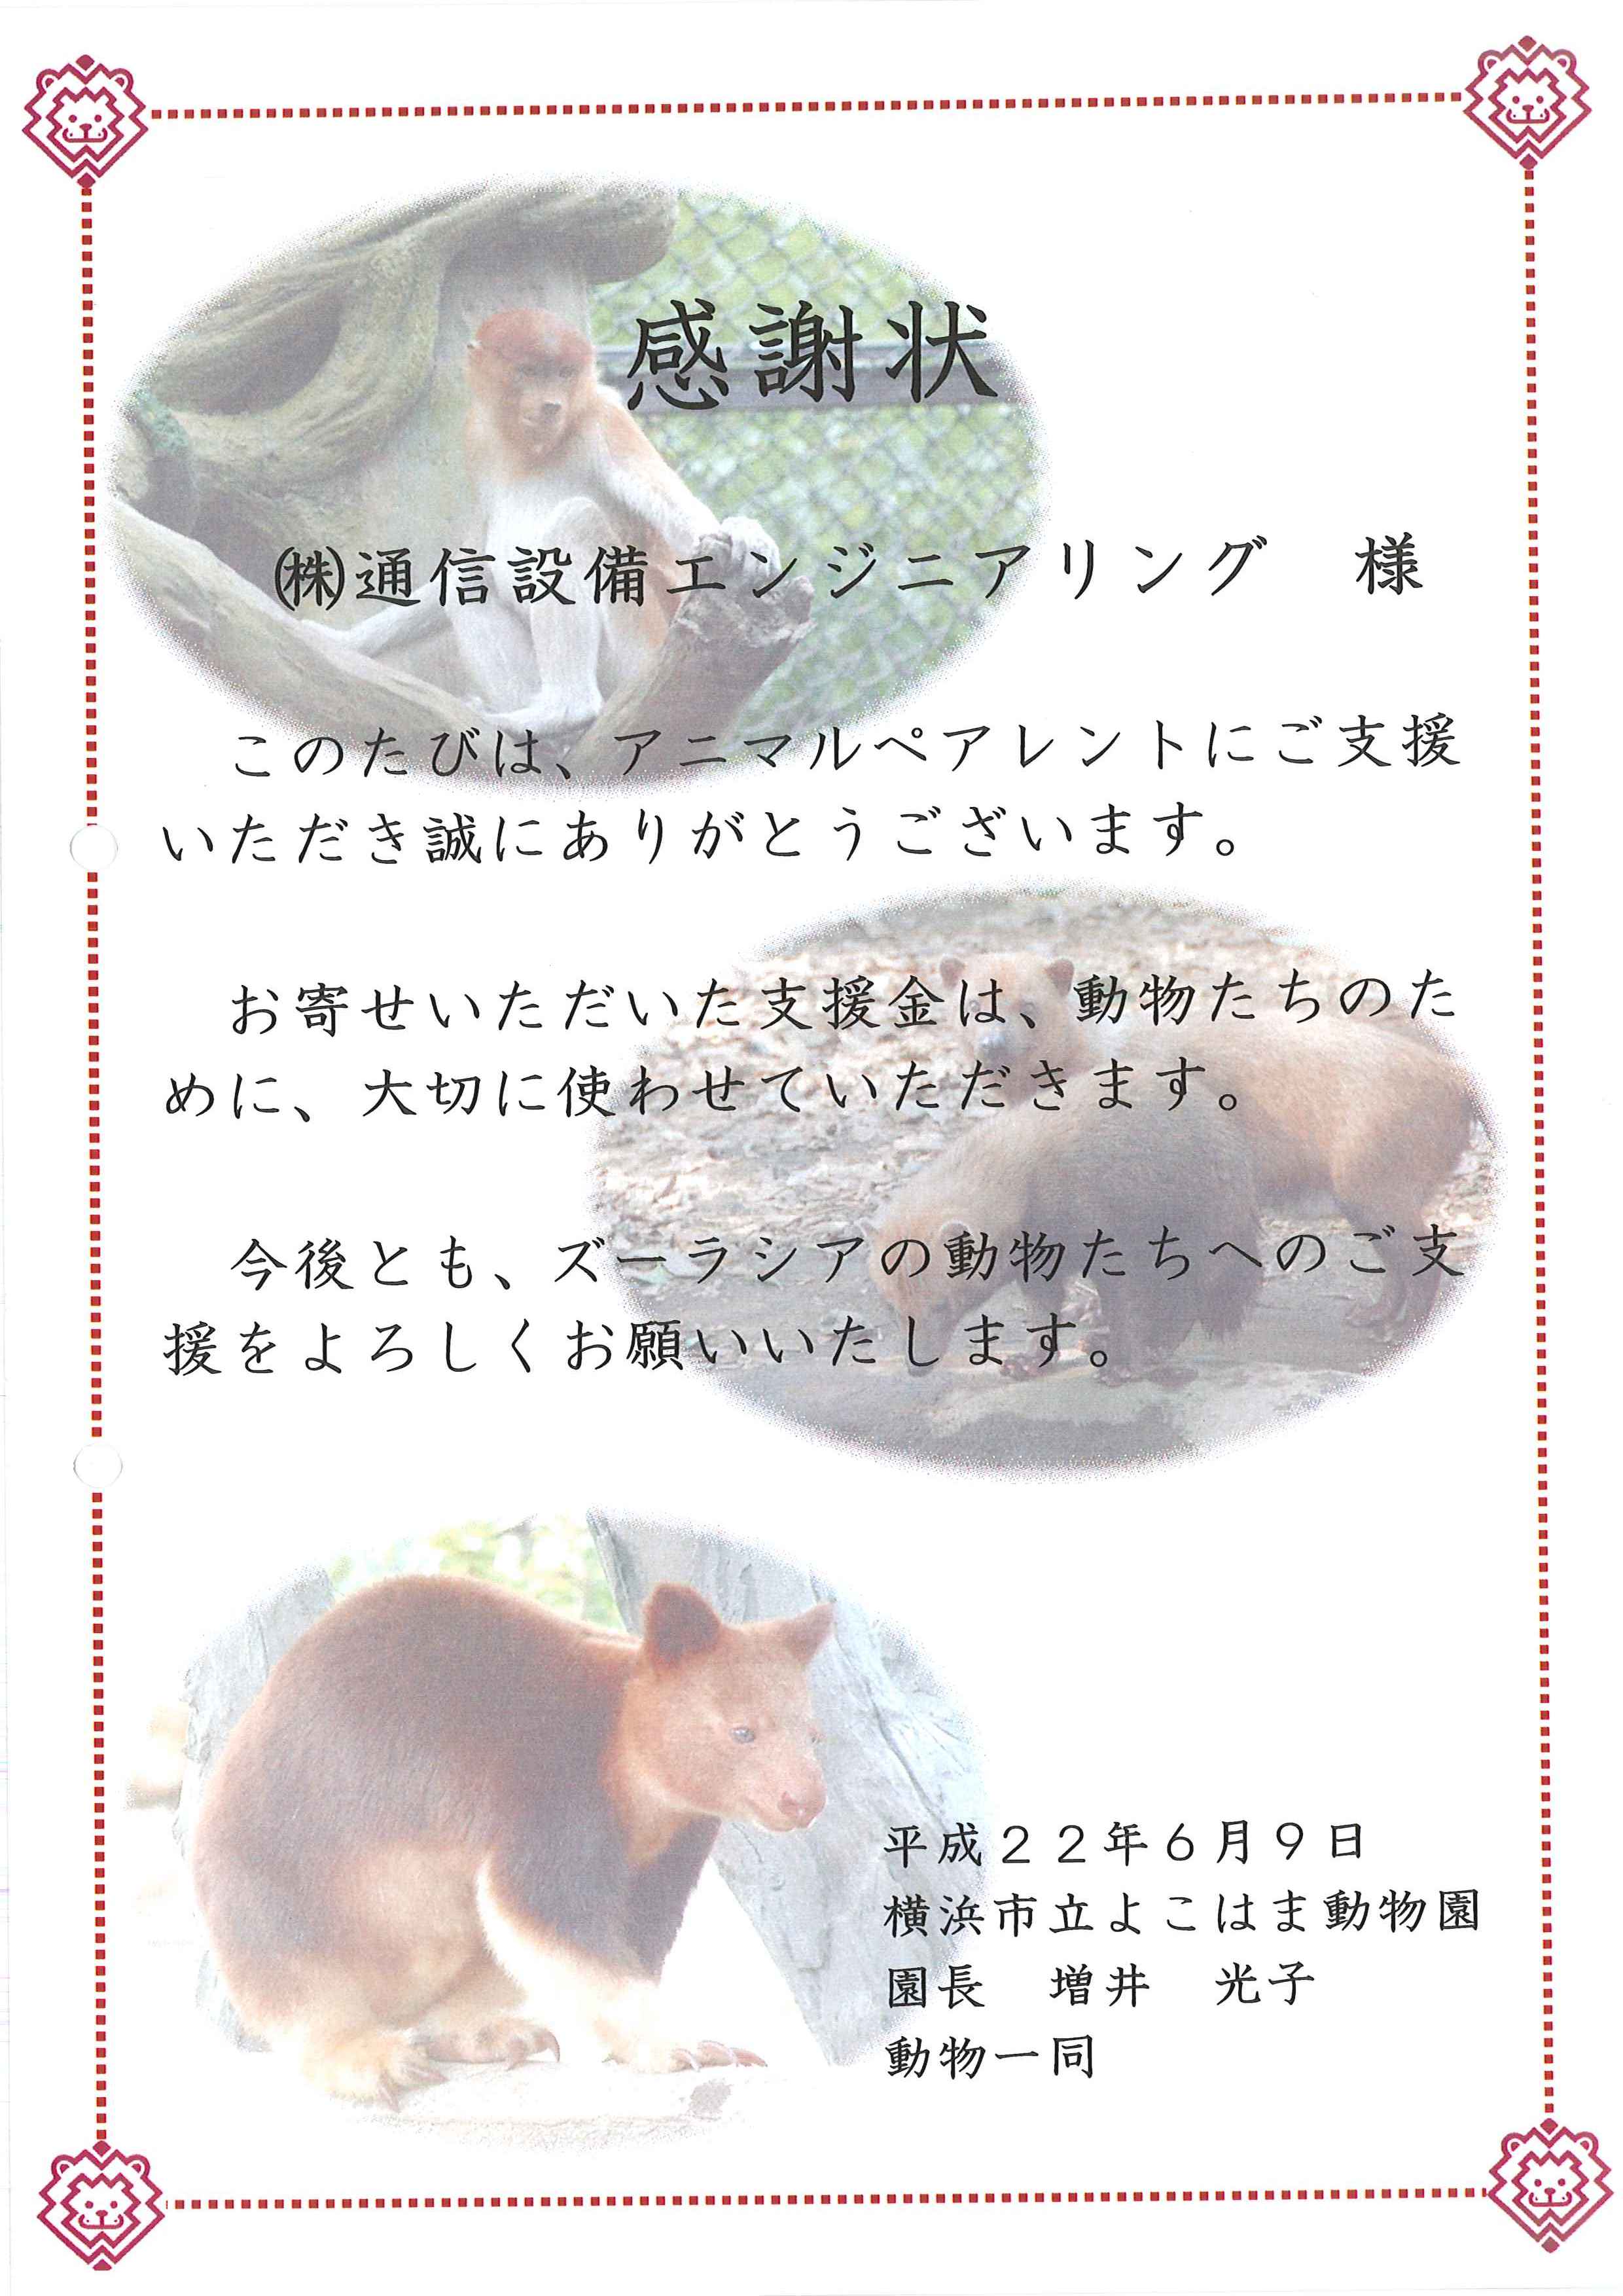 感謝状
㈱通信設備エンジニアリング　様
このたびは、アニマルペアレントにご支援
いただき誠にありがとうございます。
お寄せいただいた支援金は、動物たちのた
めに、大切に使わせていただきます。
今後とも、ズーラシアの動物たちへのご支
援をよろしくお願いいたします。
平成２２年６月９日
横浜市立よこはま動物園
園長　増井　光子
動物一同